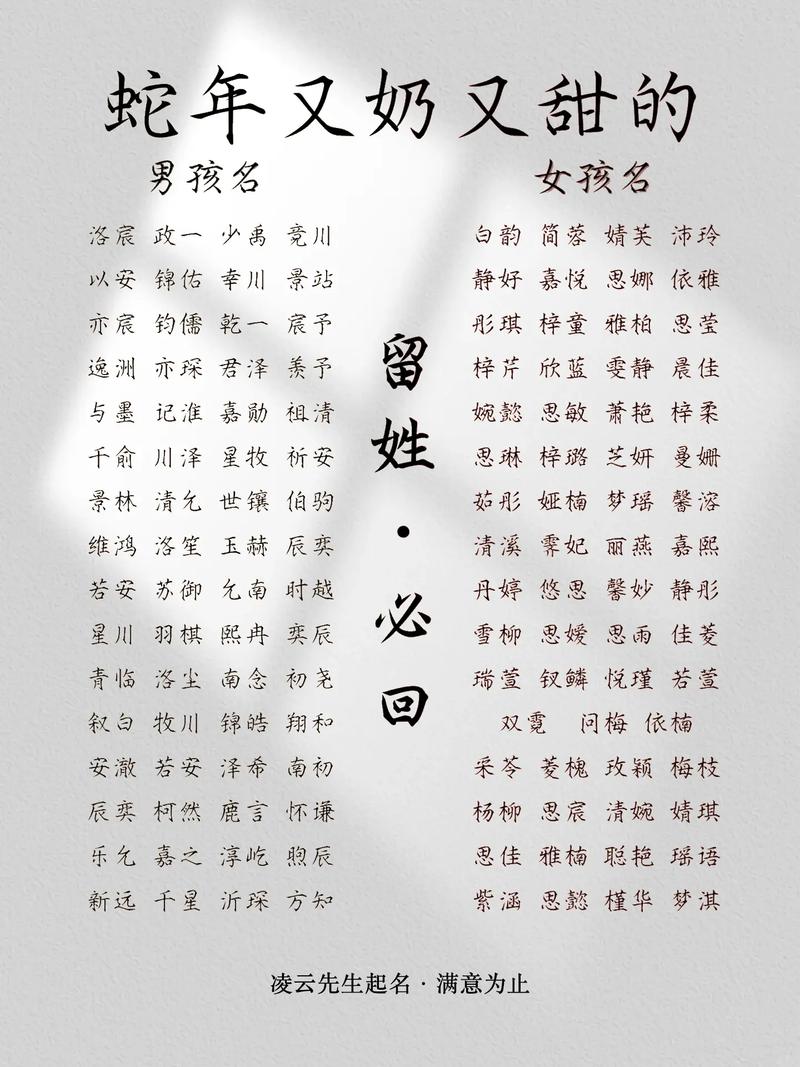 蛇年又奶又甜的
男孩名
洛宸 政一 少禹 竞川
以安 锦佑 幸川 景站
亦宸 钧儒 乾一 宸予
逸洲 亦琛 君泽 羡予
与墨 记淮 嘉勋 祖清
千俞 川泽 星牧 祈安
景林 清允 世镶 伯驹
维鸿 洛笙 玉赫 辰奕
若安 苏御 允南 时越
星川 羽棋 熙冉 奕辰
青临 洛尘 南念 初尧
叙白 牧川 锦皓 翔和
安澈 若安 泽希 南初
辰奕 柯然 鹿言 怀谦
乐允 嘉之 淳屹 煦辰
新远 千星 沂琛 方知
留姓·必回
女孩名
白韵 简蓉 婧芙 沛玲
静好 嘉悦 思娜 依雅
彤琪 梓童 雅柏 思莹
梓芹 欣蓝 雯静 晨佳
婉懿 思敏 萧艳 梓柔
思琳 梓璐 芝妍 曼姗
茹彤 娅楠 梦瑶 馨溶
清溪 霁妃 丽燕 嘉熙
丹婷 悠思 馨妙 静彤
雪柳 思嫒 思雨 佳菱
瑞萱 钗鳞 悦瑾 若萱
双霓 问梅 依楠
采苓 菱槐 玫颖 梅枝
杨柳 思宸 清婉 婧琪
思佳 雅楠 聪艳 瑶语
紫涵 思懿 槿华 梦淇
凌云先生起名·满意为止